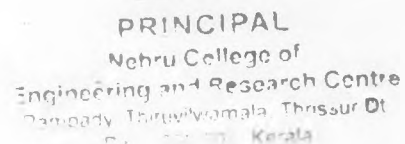 PRINCIPAL
Nehru College of
Engineering and Research Centre
Pampady, Thiruvilwamala, Thrissur Dt
Kerala